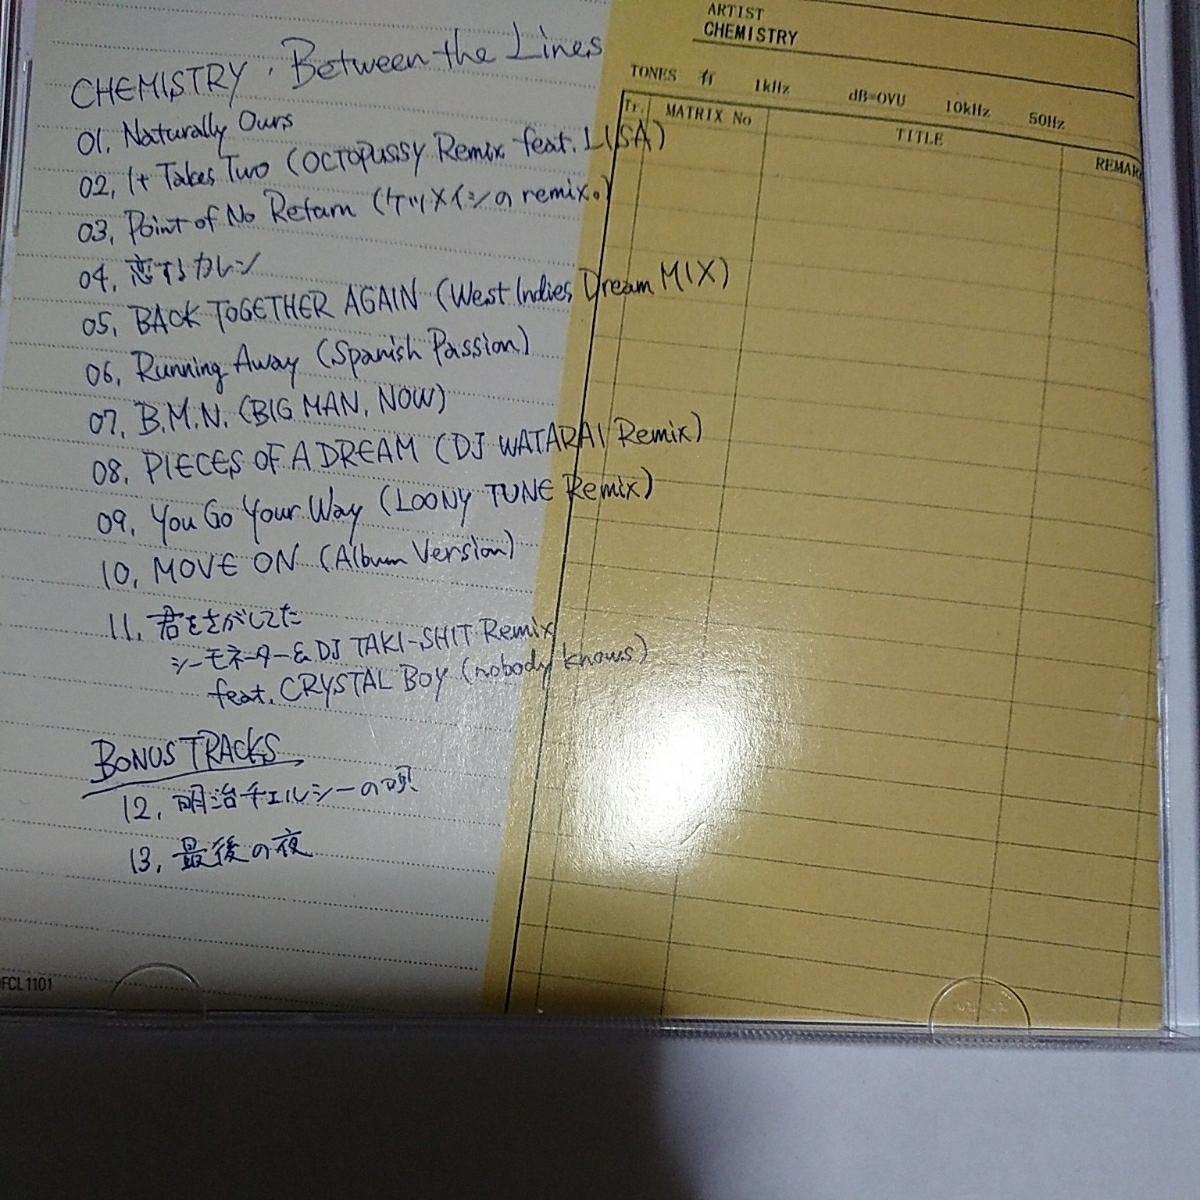 ARTIST
CHEMISTRY
TONES 有 1kHz dB=OVU 10kHz 50Hz
Tr. MATRIX No TITLE REMAR
CHEMISTRY. Between the Lines
01. Naturally Ours
02. It Takes Two (OCTOPUSSY Remix feat. LISA)
03. Point of No Return (ケツメイシのremix。)
04. 恋するカレン
05. BACK TOGETHER AGAIN (West Indies Dream MIX)
06. Running Away (Spanish Passion)
07. B.M.N. (BIG MAN, NOW)
08. PIECES OF A DREAM (DJ WATARAI Remix)
09. You Go Your Way (LOONY TUNE Remix)
10. MOVE ON (Album Version)
11. 君をさがしてた
シーモネーター& DJ TAKI-SHIT Remix
feat. CRYSTAL BOY (nobody knows)
BONUS TRACKS
12. 明治チェルシーの唄
13. 最後の夜
FCL 1101